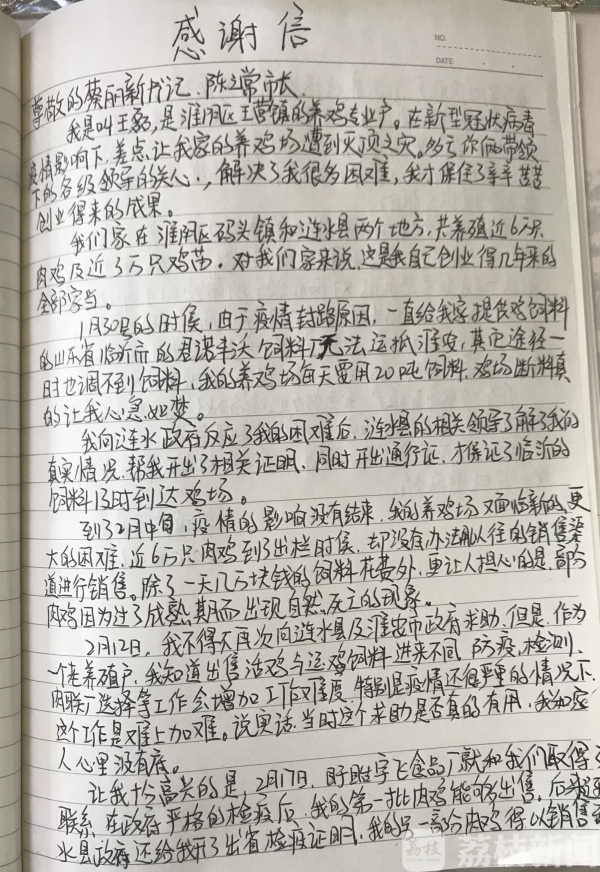 感谢信
NO.
DATE
尊敬的蔡丽新书记、陈之常市长
我是叫王磊,是淮阴区王营镇的养鸡专业户。在新型冠状病毒
疫情影响下,差点让我家的养鸡场遭到灭顶之灾。多亏你俩带领
下的各级领导的关心,解决了我很多困难,我才保住了辛辛苦苦
创业得来的成果。
我们家在淮阴区码头镇和涟水县两个地方,共养殖近6万只
肉鸡及近3万只鸡苗。对我们家来说,这是我自己创业得几年来的
全部家当。
1月30号的时候,由于疫情封路原因,一直给我家提供鸡饲料
的山东省临沂市的君谋丰沃饲料厂无法运抵淮安,其它途径一
时也调不到饲料,我的养鸡场每天要用20吨饲料,鸡场断料真
的让我人急如焚。
我向涟水政府反应了我的困难后,涟水县的相关领导了解了我的
真实情况,帮我开出了相关证明,同时开出通行证,才保证了临沂的
饲料及时到达鸡场。
到了2月中旬,疫情的影响没有结束,我的养鸡场又面临新的,更
大的困难,近6万只肉鸡到了出栏时候,却没有办法从以往的销售渠
道进行销售。除了一天几万块钱的饲料花费外,更让人担心的是,部分
肉鸡因为过了成熟期而出现自然死亡的现象。
2月12日,我不得不再次向涟水县及淮安市政府求助,但是,作为
一个老养殖户,我知道出售活鸡与运鸡饲料进来不同,防疫,检测,
肉联厂选择等工作会增加工作难度,特别是疫情还很严重的情况下,
这个工作是难上加难。说实话,当时这个求助是否真的有用,我和家
人心里没有底。
让我十分高兴的是,2月17日,盱眙宇飞食品厂就和我们取得了
联系,在政府严格的检疫后,我的第一批肉鸡能够出售,后来涟
水县政府还给我开了出省检疫证明,我的另一部分肉鸡得以销售到
荔枝
荔枝新闻